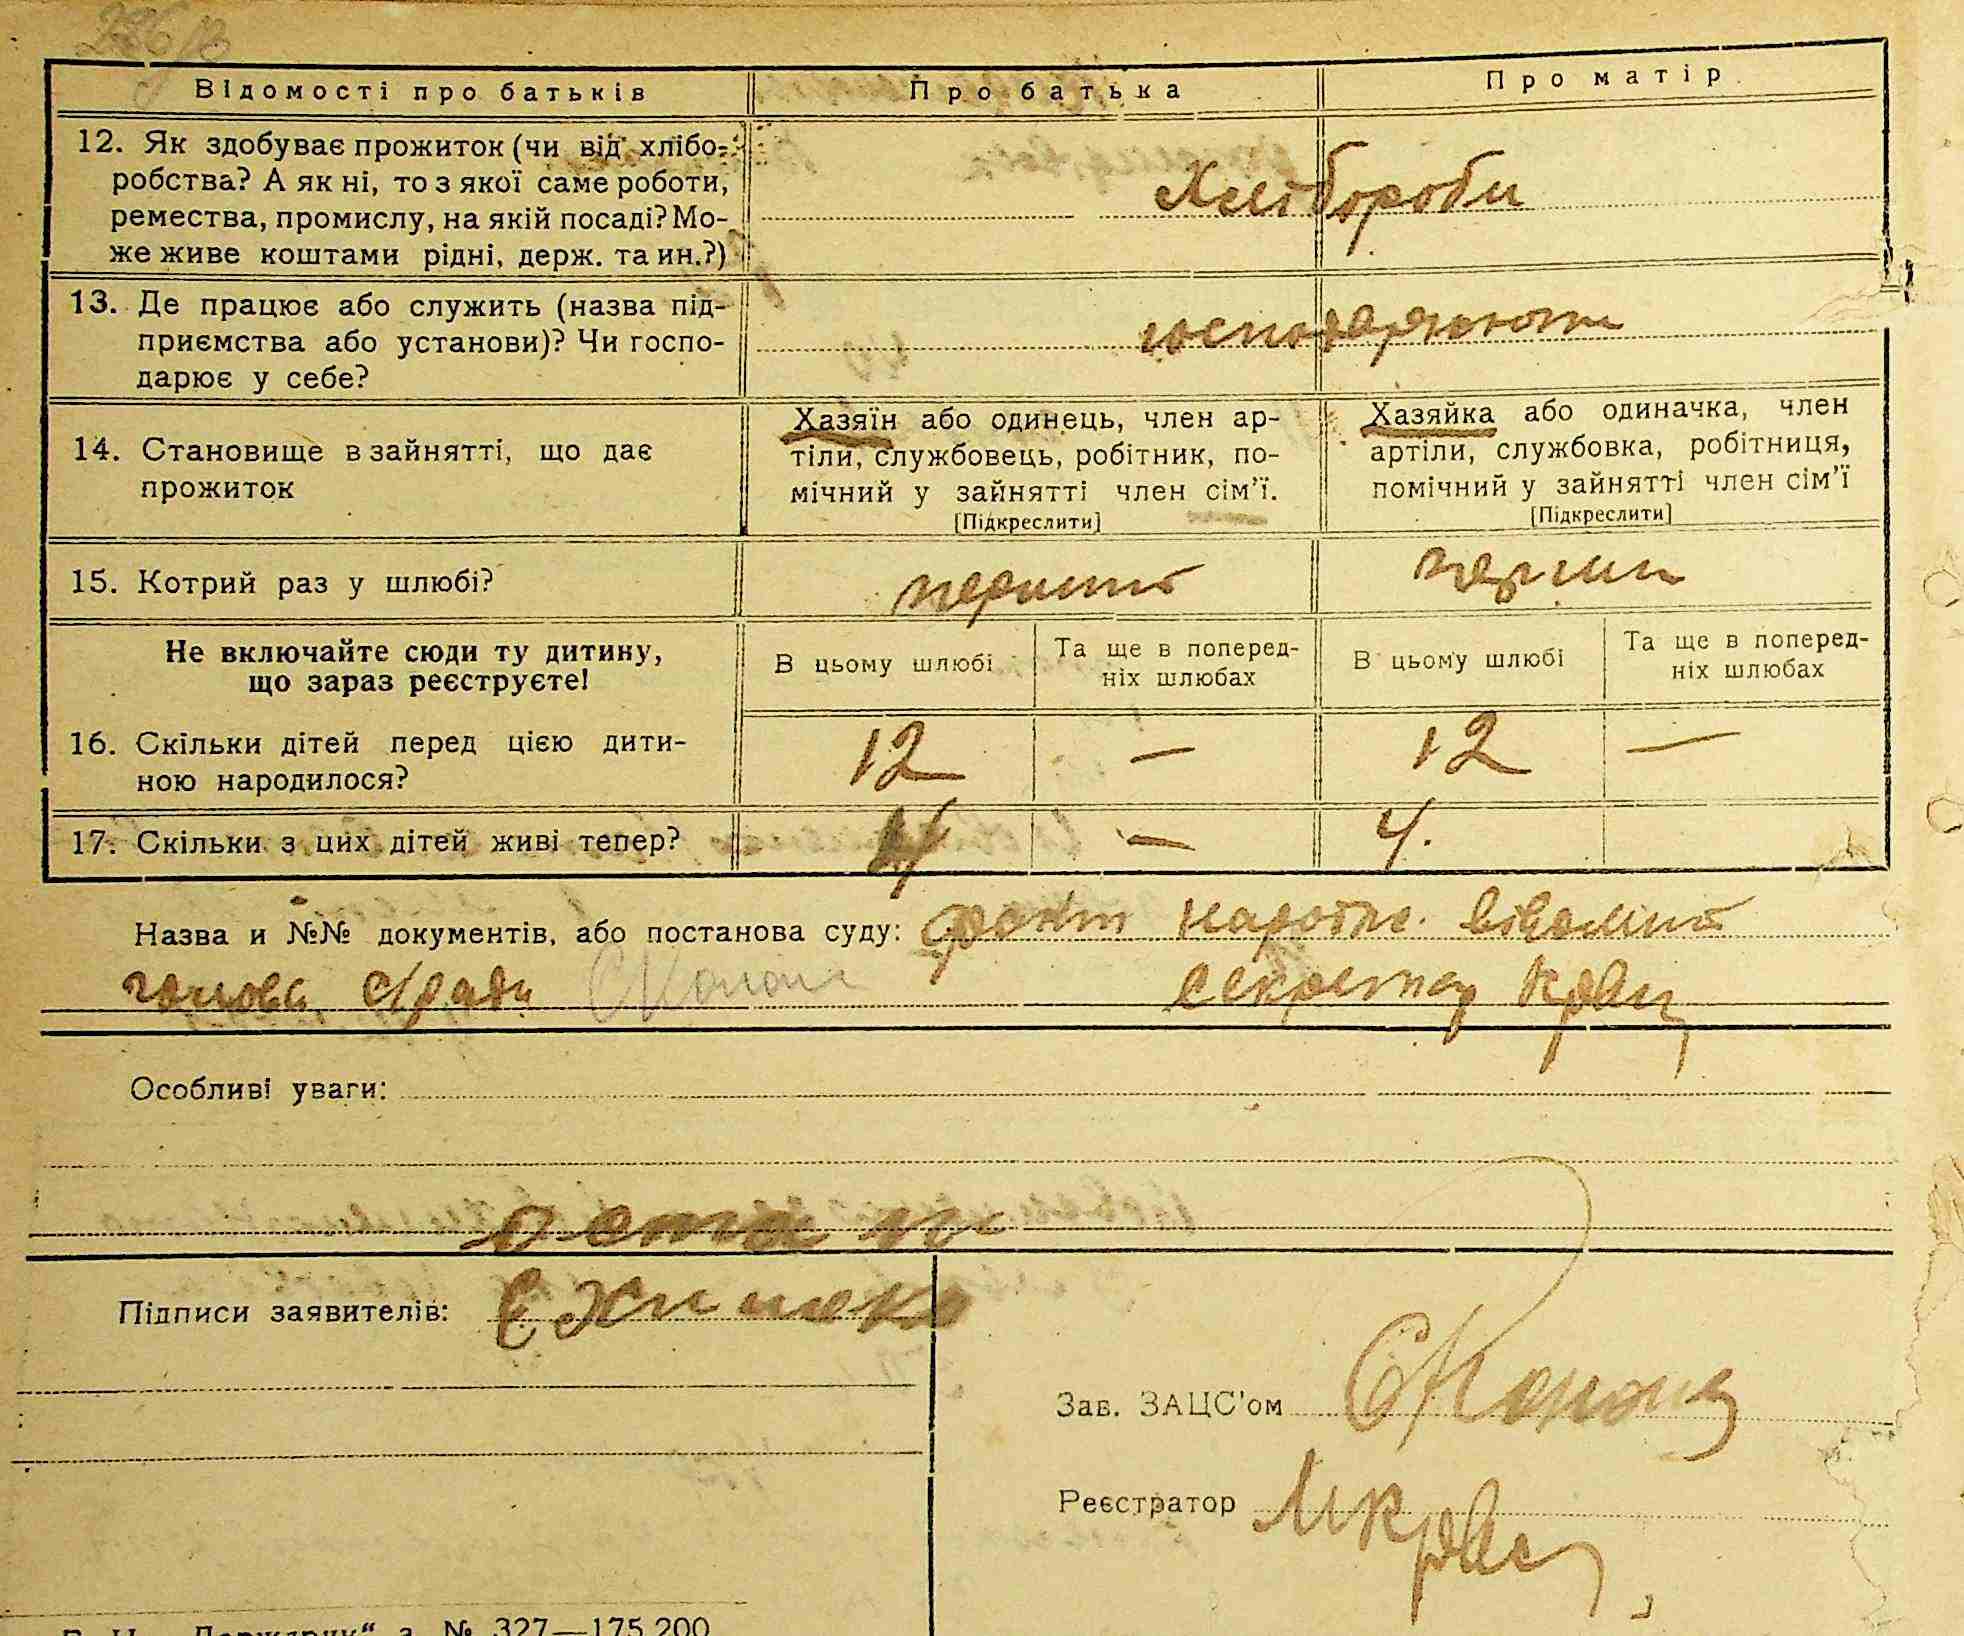 Відомості про батьків Про батька Про матір
12. Як здобуває прожиток (чи від хлібо-
робства? А як ні, то з якої саме роботи,
ремества, промислу, на якій посаді? Мо-
же живе коштами рідні, держ. та ин.?)
Хлібороби
13. Де працює або служить (назва під-
приємства або установи)? Чи госпо-
дарює у себе?
господарюють
14. Становище в зайнятті, що дає
прожиток
Хазяїн або одинець, член ар-
тіли, службовець, робітник, по-
мічний у зайнятті член сім'ї.
[Підкреслити]
Хазяйка або одиначка, член
артіли, службовка, робітниця,
помічний у зайнятті член сім'ї
[Підкреслити]
15. Котрий раз у шлюбі? перший перший
Не включайте сюди ту дитину,
що зараз реєструєте!
В цьому шлюбі
Та ще в поперед-
ніх шлюбах
В цьому шлюбі
Та ще в поперед-
ніх шлюбах
16. Скільки дітей перед цією дити-
ною народилося?
12 — 12 —
17. Скільки з цих дітей живі тепер? 4 — 4.
Назва и №№ документів, або постанова суду: факт народж. відомий
голова с/ради секретар Кравец
Особливі уваги:
Підписи заявителів:
Зав. ЗАЦС'ом
Реєстратор МКравец
№ 327—175.200